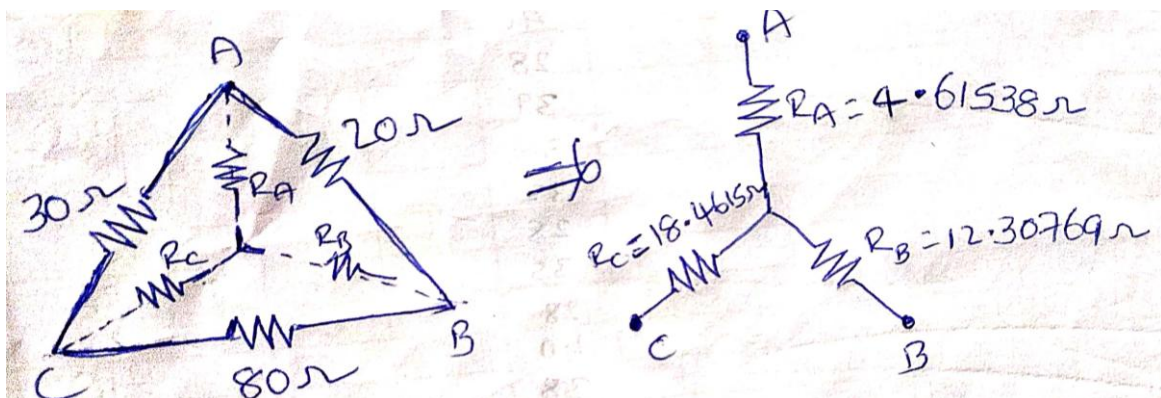 A
20Ω
30Ω
RA
RC
RB
C
80Ω
B
A
RA = 4.61538Ω
RC = 18.4615Ω
RB = 12.30769Ω
C
B